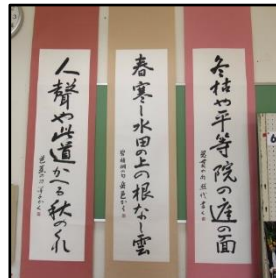 冬枯や平等院の庭の面
春寒し水田の上の根なし雲
人聲や此道かへる秋のくれ